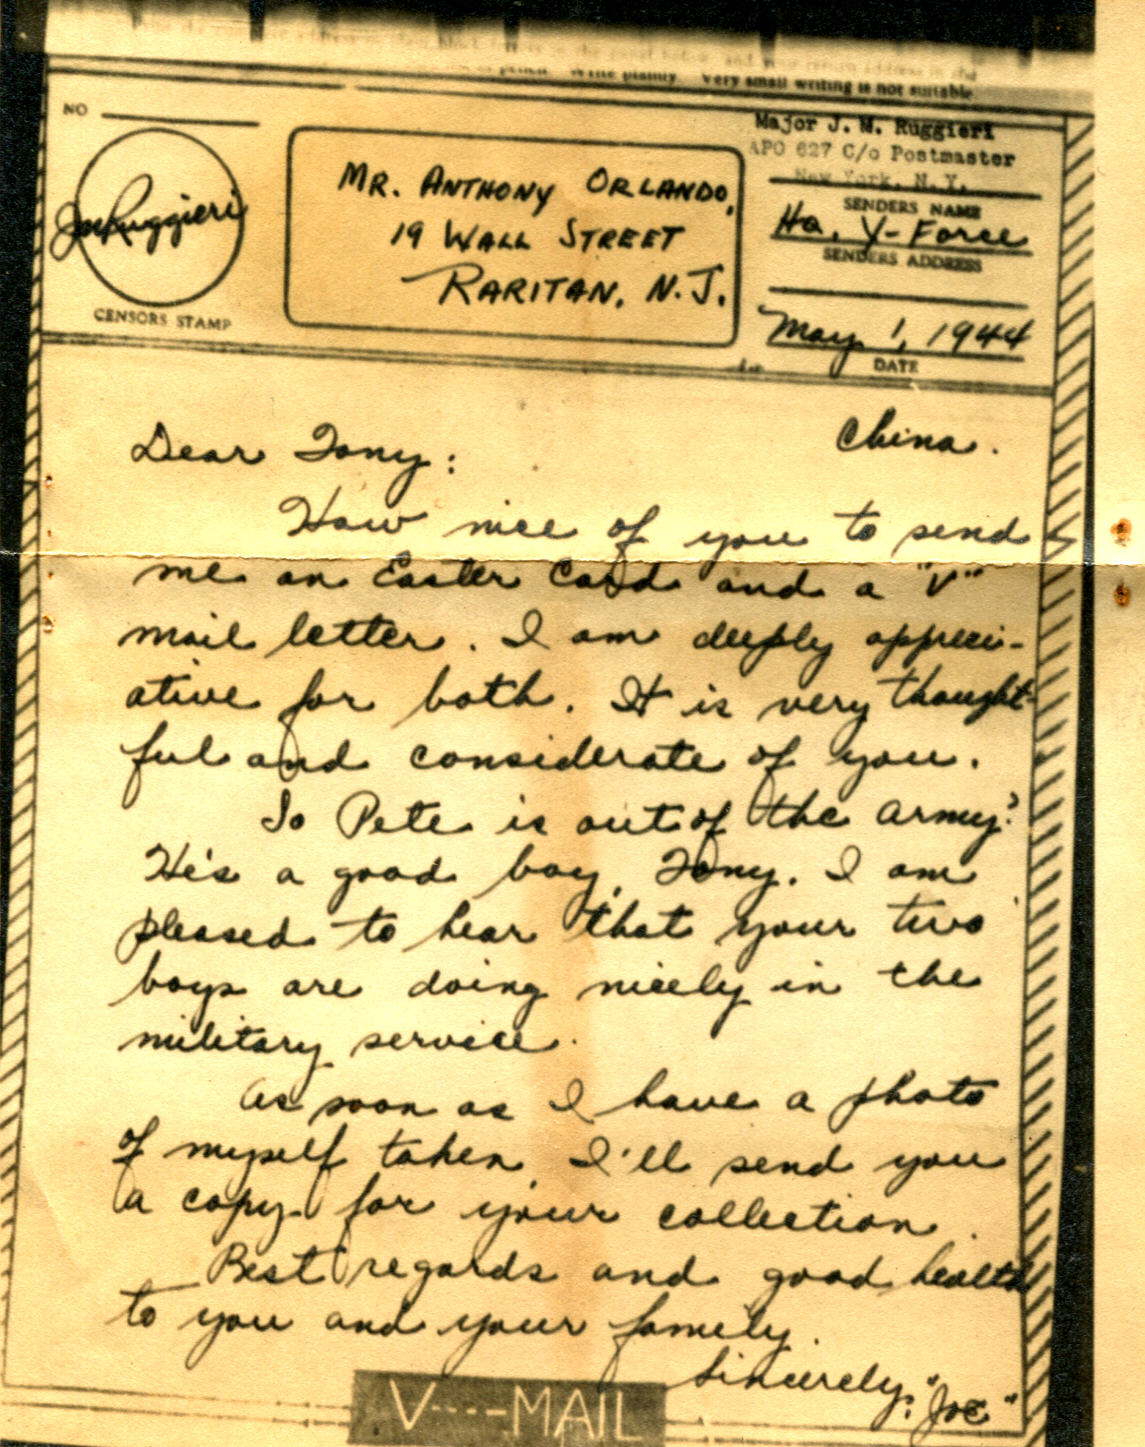 write plainly. Very small writing is not suitable.
NO
Joe Ruggieri
CENSORS STAMP
MR. ANTHONY ORLANDO,
19 WALL STREET
RARITAN, N.J.
Major J. M. Ruggieri
APO 627 C/o Postmaster
New York, N. Y.
SENDERS NAME
Hq. Y-Force
SENDERS ADDRESS
May 1, 1944
DATE
China.
Dear Tony:
How nice of you to send
me an Easter Card and a "V"
mail letter. I am deeply appreci-
ative for both. It is very thought-
ful and considerate of you.
So Pete is out of the army?
He's a good boy, Tony. I am
pleased to hear that your two
boys are doing nicely in the
military service.
As soon as I have a photo
of myself taken, I'll send you
a copy for your collection.
Best regards and good health
to you and your family.
Sincerely, "Joe"
V----MAIL